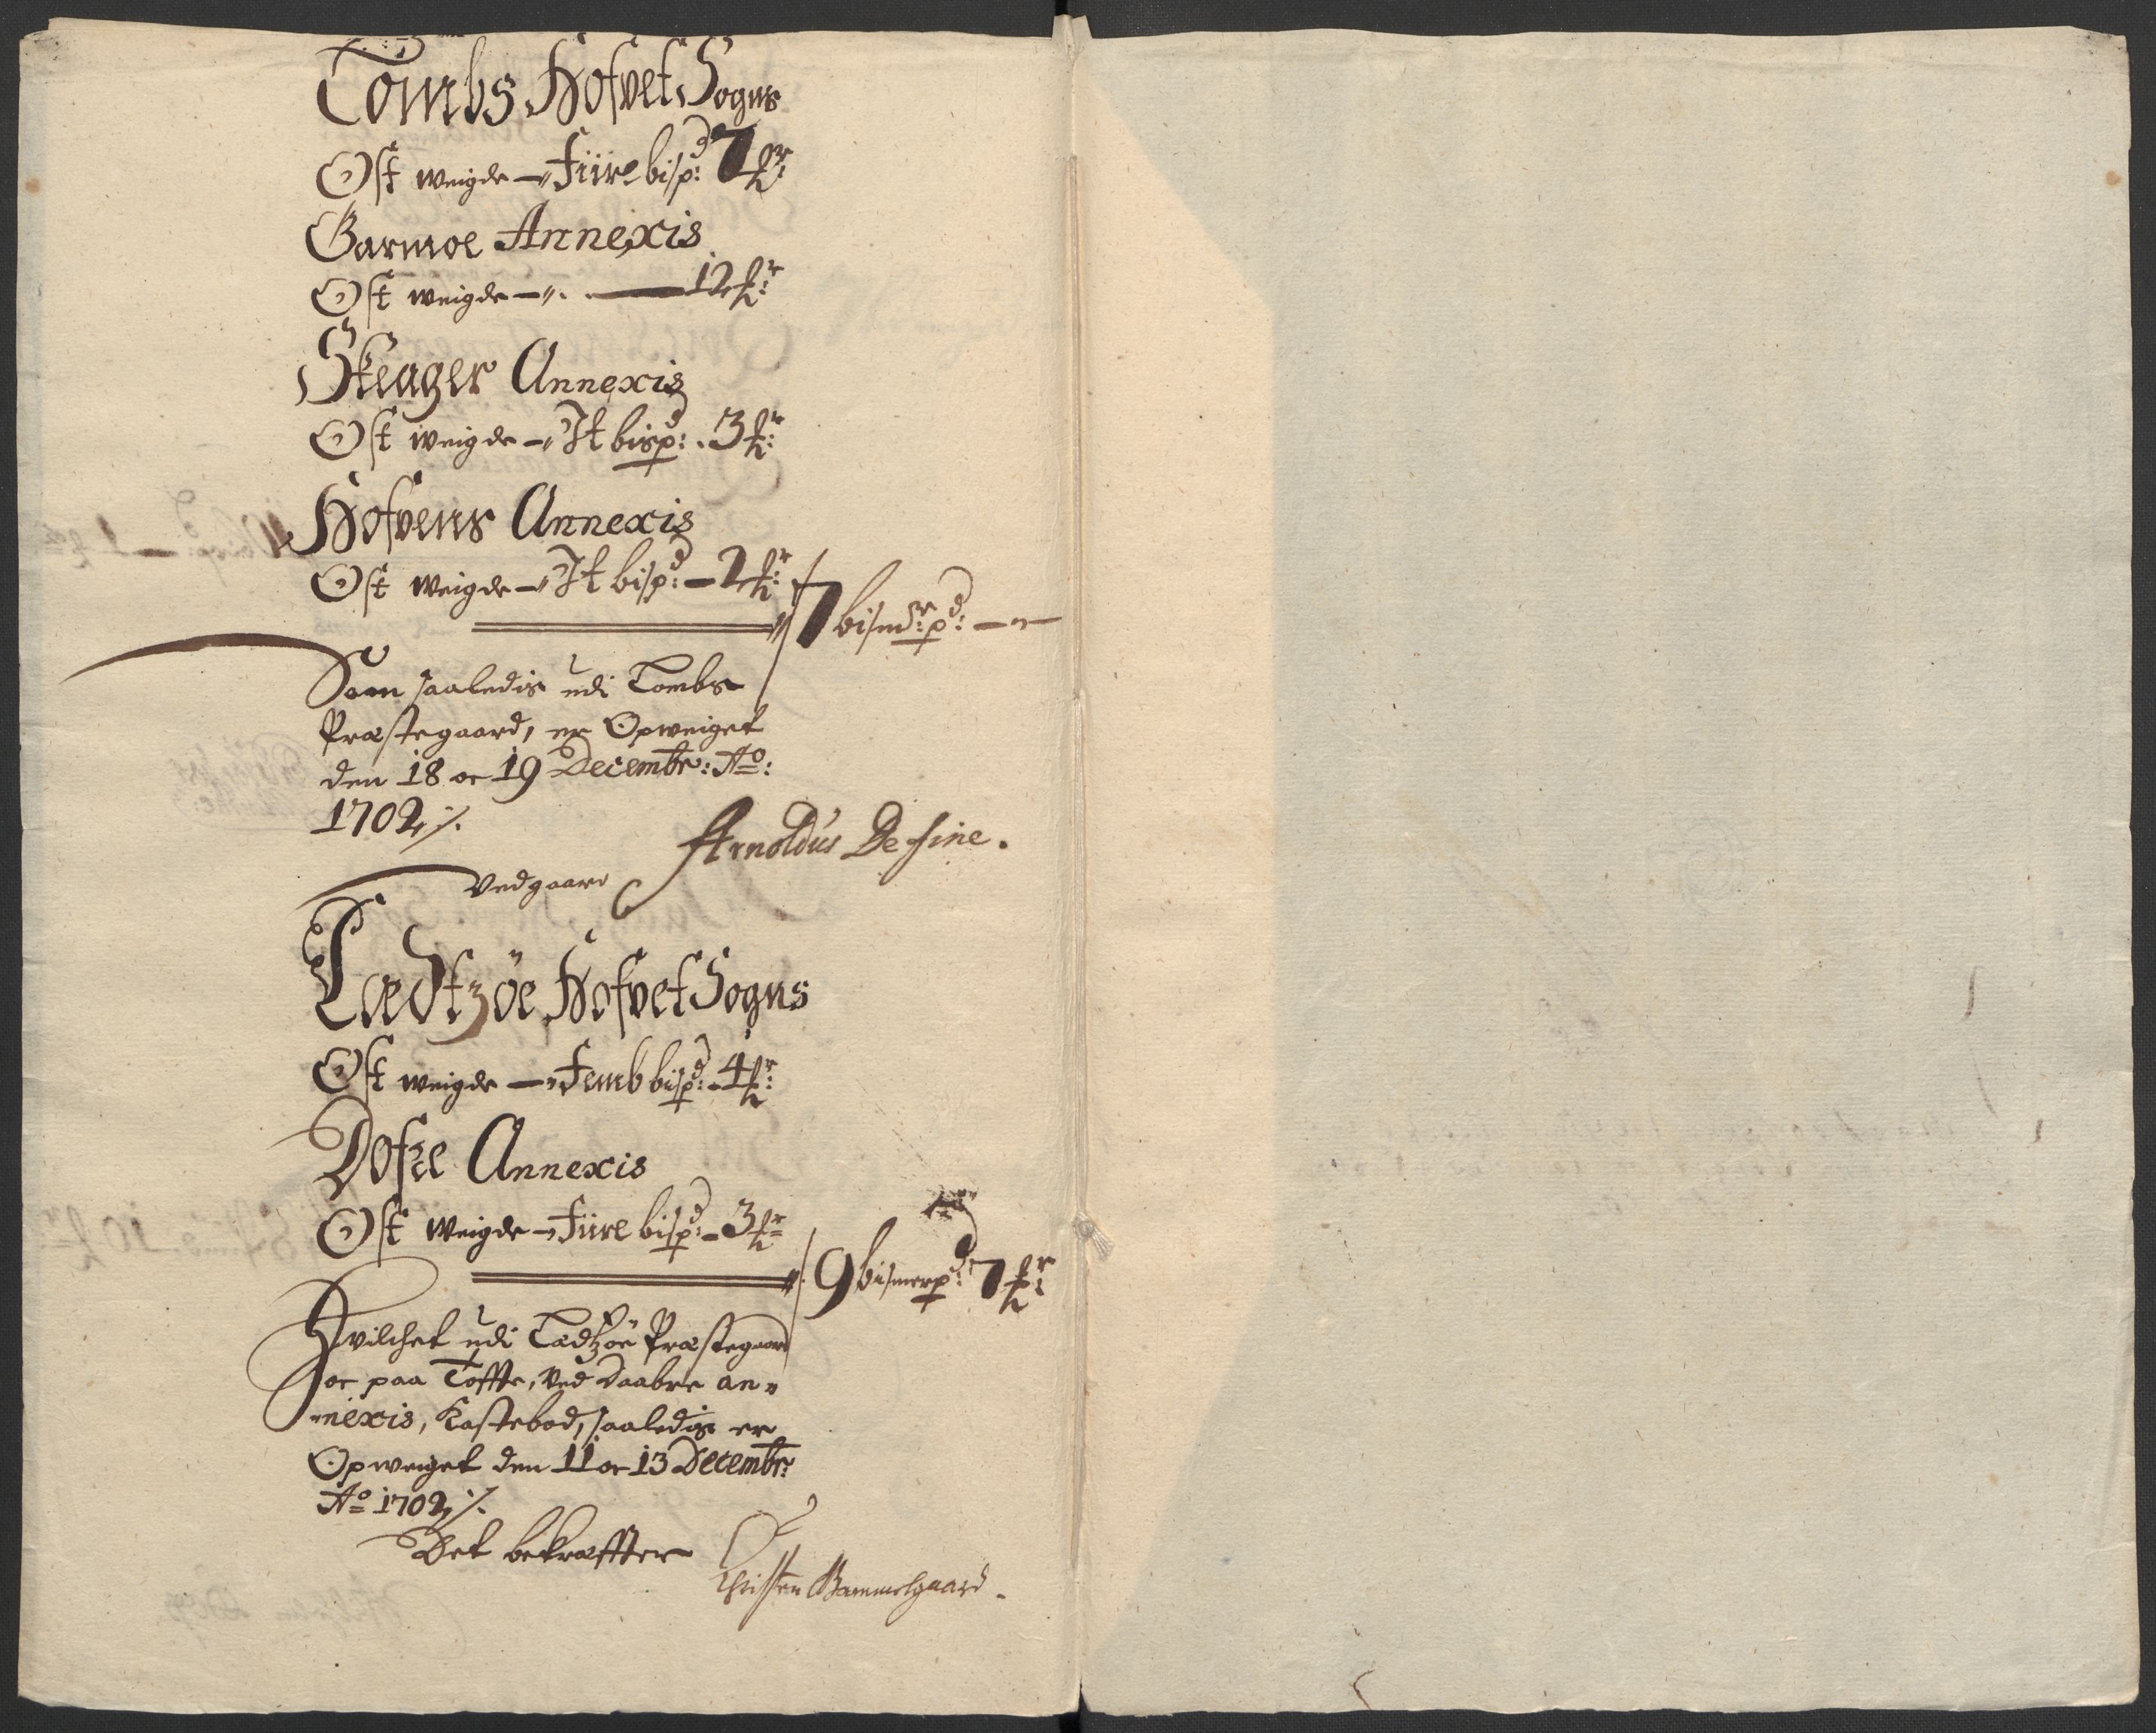 Lombs Hofvet Sogns
Ost weigde — Fiire bisp:d 7 ℔r:
Garmoe Annexis
Ost weigde — 12 ℔r:
Skeager Annexis
Ost weigde — It bisp:d 3 ℔r:
Hofvens Annexis
Ost weigde — It bisp:d — 2 ℔r:
7 bismr:pd: —
Som saaledis udi Lombs
Præstegaard, er Opweiget
den 18 oc 19 Decembr: Ao:
1702 ⁒.
Arnoldus De fine.
Vedgaard
Lædtzöe Hofvet Sogns
Ost weigde — Femb bisp:d 4 ℔r:
Dofre Annexis
Ost weigde — Fiire bisp:d — 3 ℔r
9 bismerpd: 7 ℔r:
Hvilchet udi Lædtzöe Præstegaard
oc paa Toffte, ved Daabre an-
nexis, Kastebod, saaledis er
Opweiget den 11 oc 13 Decembr:
Ao 1702 ⁒.
Det bekræffter
Christen Bammelgaard.